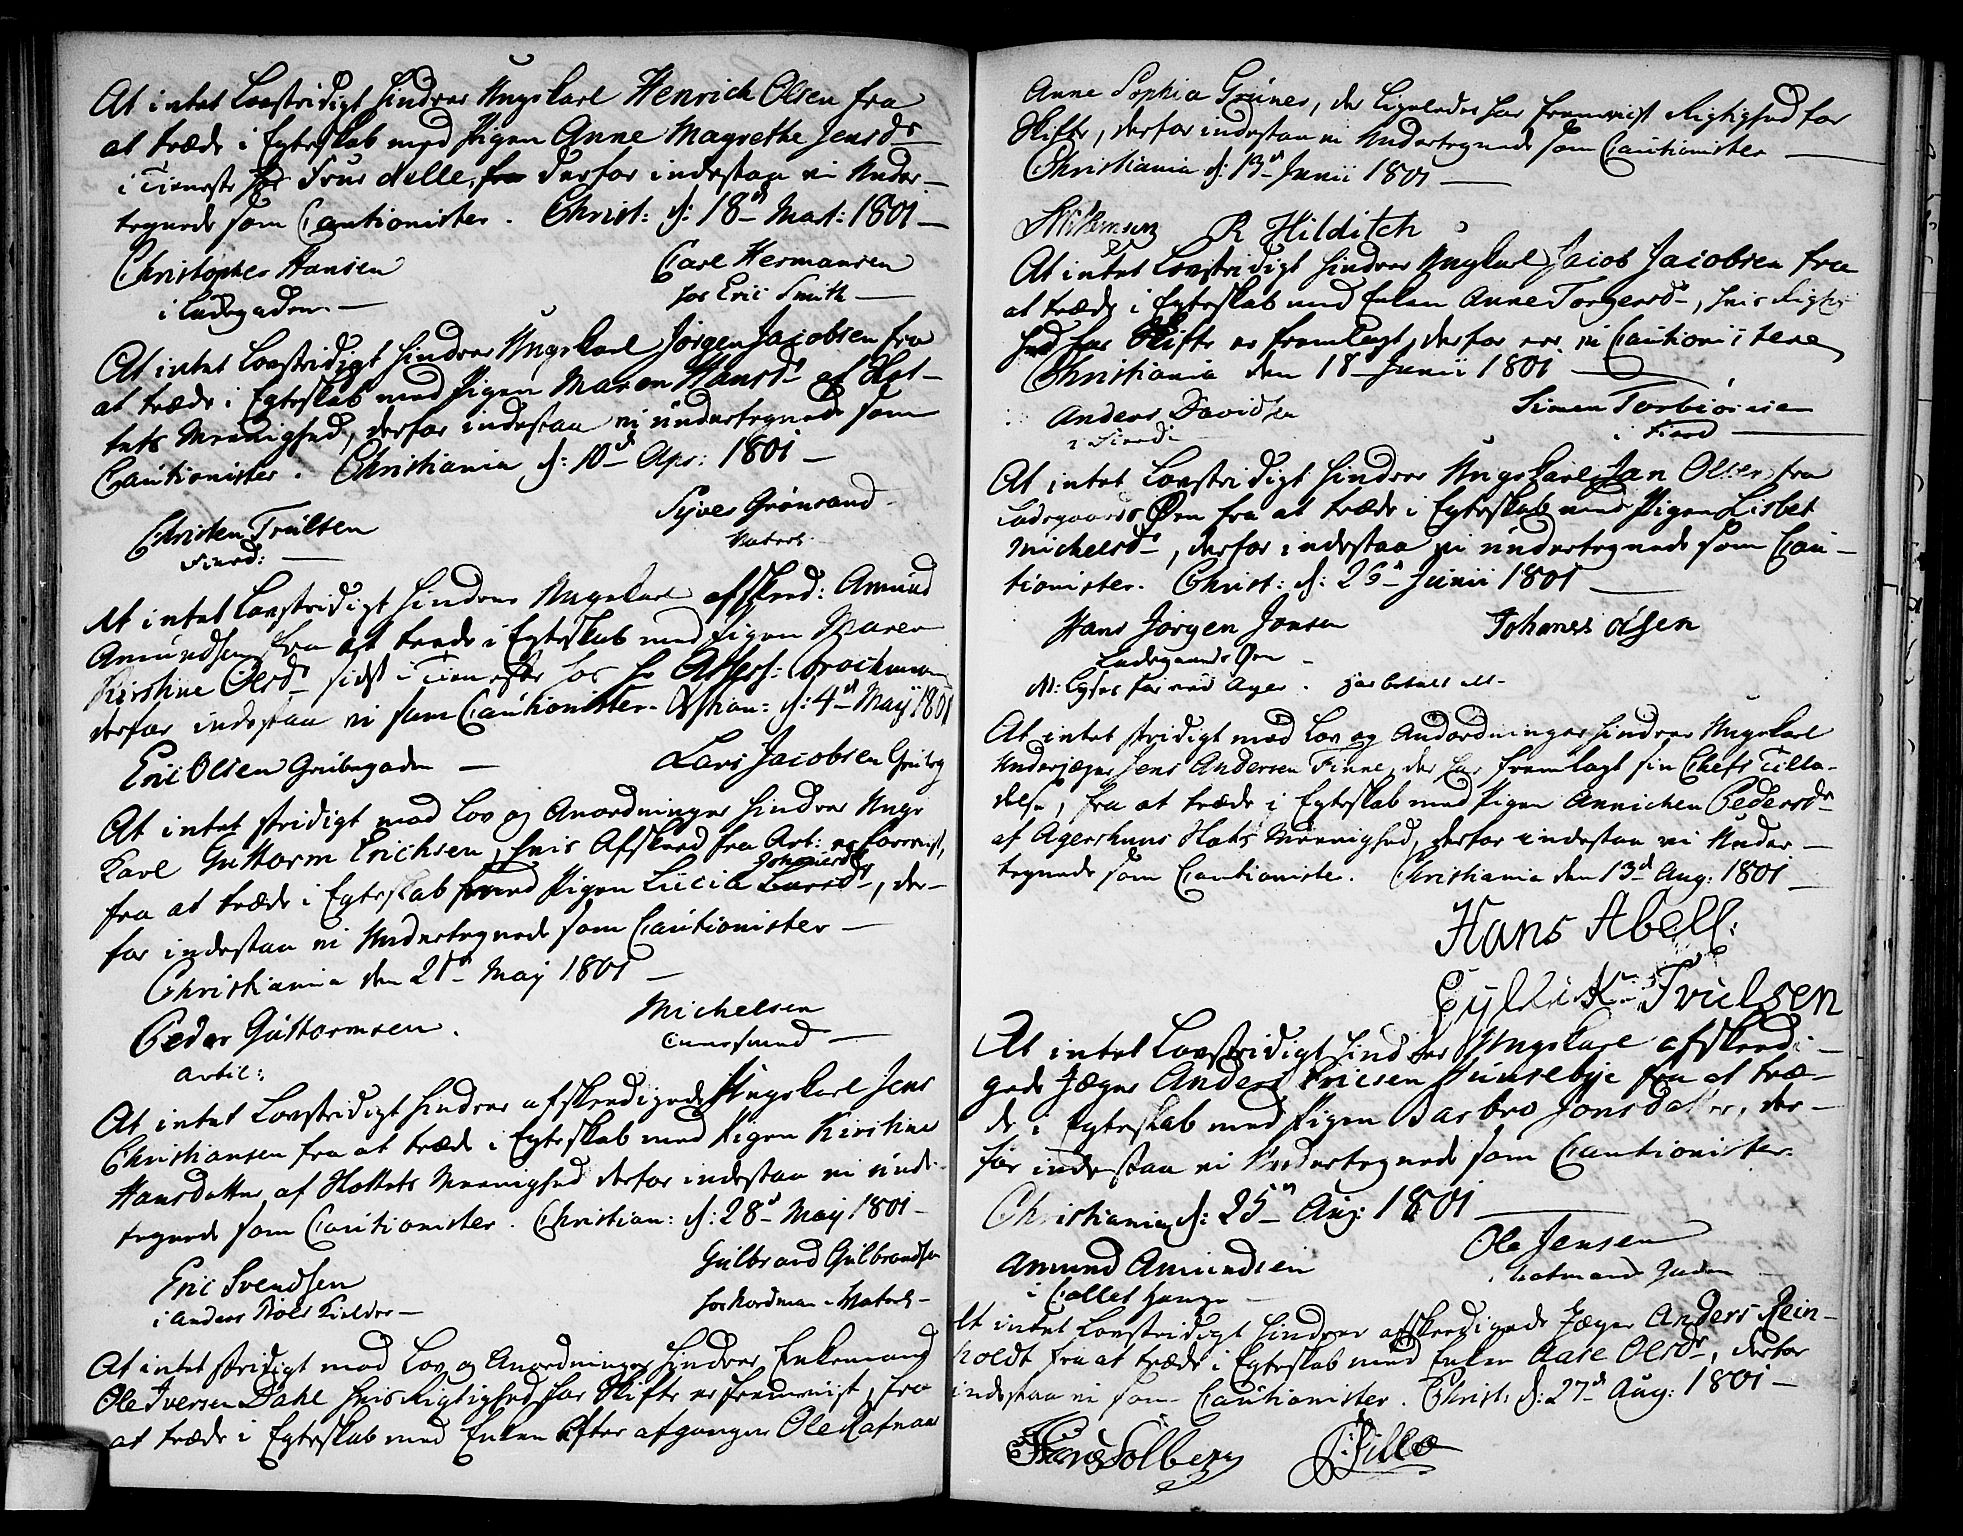 At intet Lovstridigt hindrer Ungekarl Henrich Olsen fra
at træde i Egteskab med Pigen Anne Magrethe Jensdr
i Tieneste hos Frue Nelle, derfor indestaa vi Under-
tegnede som Cautionister. Christ: d: 18de Mart: 1801
Christopher Hansen Carl Hermansen
hos Eric Smith
At intet Lovstridigt hindrer Ungekarl Jørgen Jacobsen fra
at træde i Egteskab med Pigen Maren Hansdr af Slot-
tets Menighed, derfor indestaa vi undertegnede som
Cautionister. Christiania d: 10de Apr: 1801
Christen Trulsen Syver Grønsand
Fierd: Matros
At intet Lovstridigt hindrer Ungekarl afskeed: Amund
Amundsen fra at træde i Egteskab med Pigen Maren
Kirstine Olsdr sidst i Tieneste hos Hr Assess: Brochman
derfor indestaa vi som Cautionister. Xstian: d: 4de Maij 1801
Eric Olsen Grübegaden Lars Jacobsen Grübeg
At intet stridigt mod Lov og Anordninger hindrer Unge
Karl Guttorm Erichsen, hvis Afskeed fra Art: er foreviist,
Johannesdr
fra at træde i Egteskab med Pigen Lucia Larsdr, der-
for indestaa vi Undertegnede som Cautionister
Christiania den 21de Maj 1801
Peder Guttormsen. Michelsen
Artil:
At intet Lovstridigt hindrer afskeedigede Ungekarl Jens
Christiansen fra at træde i Egteskab med Pigen Kirstine
Hansdatter af Slottets Menighed derfor indestaa vi unde
tegnede som Cautionister. Christian: d: 28de Maj 1801
Eric Svendsen Gulbrand Gulbrandsen
i Anders Kielder hos Nordman Matros
At intet stridigt mod Lov og Anordninger hindrer Enkemand
Ole Iversen Dahl hvis Rigtighed for Skifte er fremviist, fra
at træde i Egteskab med Enken efter afgangen Ole Ratnaas
Anne Sophia Grüner, der ligeledes har fremviist Rigtighed for
Skifte, derfor indestaa vi Undertegnede som Cautionister
Christiania d: 13de Junii 1801
R Hilditch
At intet Lovstridigt hindrer Ungkarl Jacob Jacobsen fra
at træde i Egteskab med Enken Anne Torgersdr, hvis Rigtig
hed for Skifte er fremlagt, derfor ere vi Cautionistere
Christiania den 18de Junii 1801
Anders Davidsen Simen Torbiörnsen
i Fierd: i Fierd
At intet Lovstridigt hindrer Ungekarl Jan Olsen fra
Ladegaards Øen fra at træde i Egteskab med Pigen Lisbet
Michelsdr, derfor indestaa vi undertegnede som Cau-
tionister. Christ: d: 26de Junii 1801
Hans Jørgen Jonsen Johanes Olsen
Ladegaards Øen
At intet stridigt mod Lov og Andordninger hindrer Ungekarl
Underjæger Jens Andersen Finne, der har fremlagt sin Chefs Tilla-
delse, fra at træde i Egteskab med Pigen Annichen Pedersdr
af Agershuus Slots Menighed, derfor indestaa vi Under-
tegnede som Cautioniste. Christiania den 13de Aug: 1801
Hans Abell:
Trulsen
At intet Lovstridigt hindrer Ungekarl afskeedi-
gede Jæger Anders Ericsen Hunsebye fra at træ-
de i Egteskab med Pigen Barbro Jonsdatter, der-
for indestaa vi Undertegnede som Cautionister
Christiania d: 25de Aug: 1801
Amund Amundsen Ole Jensen
Gaden
At intet Lovstridigt hindrer afskeedigede Jæger Anders Rein-
holdt fra at træde i Egteskab med Enken Aase Olsdr, derfor
indestaa vi som Cautionister. Christ: d: 27de Aug: 1801
Hans Solberg